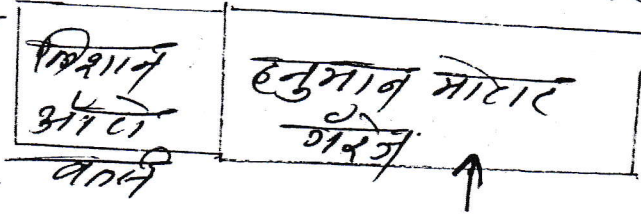 निशान
ऑटो
वर्क्स
हनुमान मोटार
गॅरेज